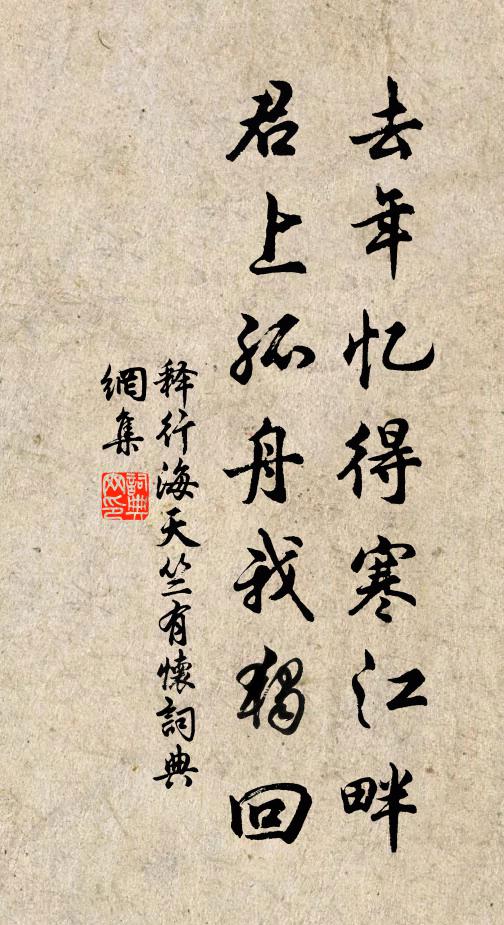 去年忆得寒江畔
君上孤舟我独回
释行海天竺有懷詞典
網集
詞典网印